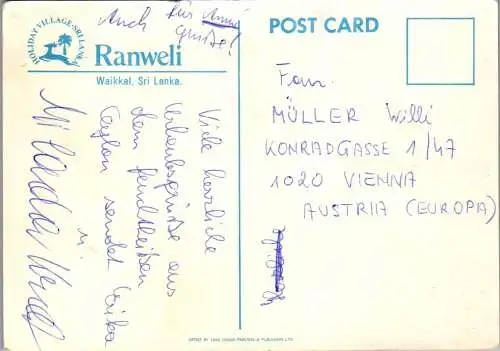 Auch für Anni
Grüße!
HOLIDAY VILLAGE-SRI LANKA
Ranweli
Waikkal, Sri Lanka.
POST CARD
Viele herzliche
Urlaubsgrüße aus
dem feuchtheißen
Ceylon sendet Erika
Fam.
MÜLLER Willi
KONRADGASSE 1/47
1020 VIENNA
AUSTRIA (EUROPA)